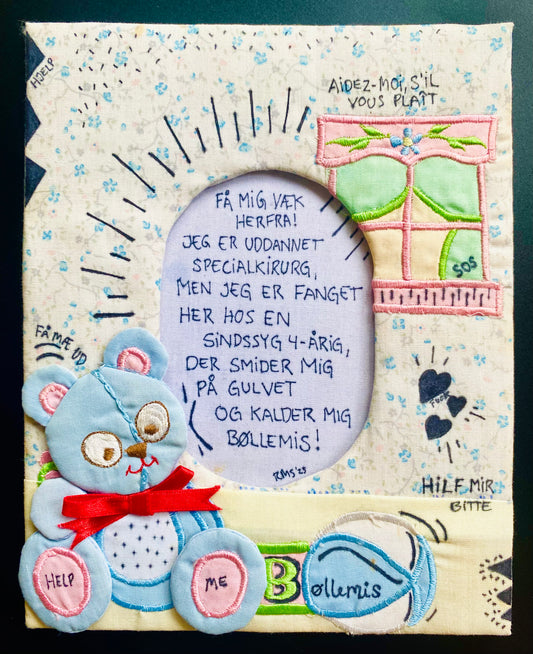 HJELP
AIDEZ-MOI, S'IL
VOUS PLAÎT
FÅ MIG VÆK
HERFRA!
JEG ER UDDANNET
SPECIALKIRURG,
MEN JEG ER FANGET
HER HOS EN
SINDSSYG 4-ÅRIG,
DER SMIDER MIG
PÅ GULVET
OG KALDER MIG
BØLLEMIS!
RMS'25
SOS
FÅ MÆ UD
HILF MIR
BITTE
HELP
ME
B
Bøllemis